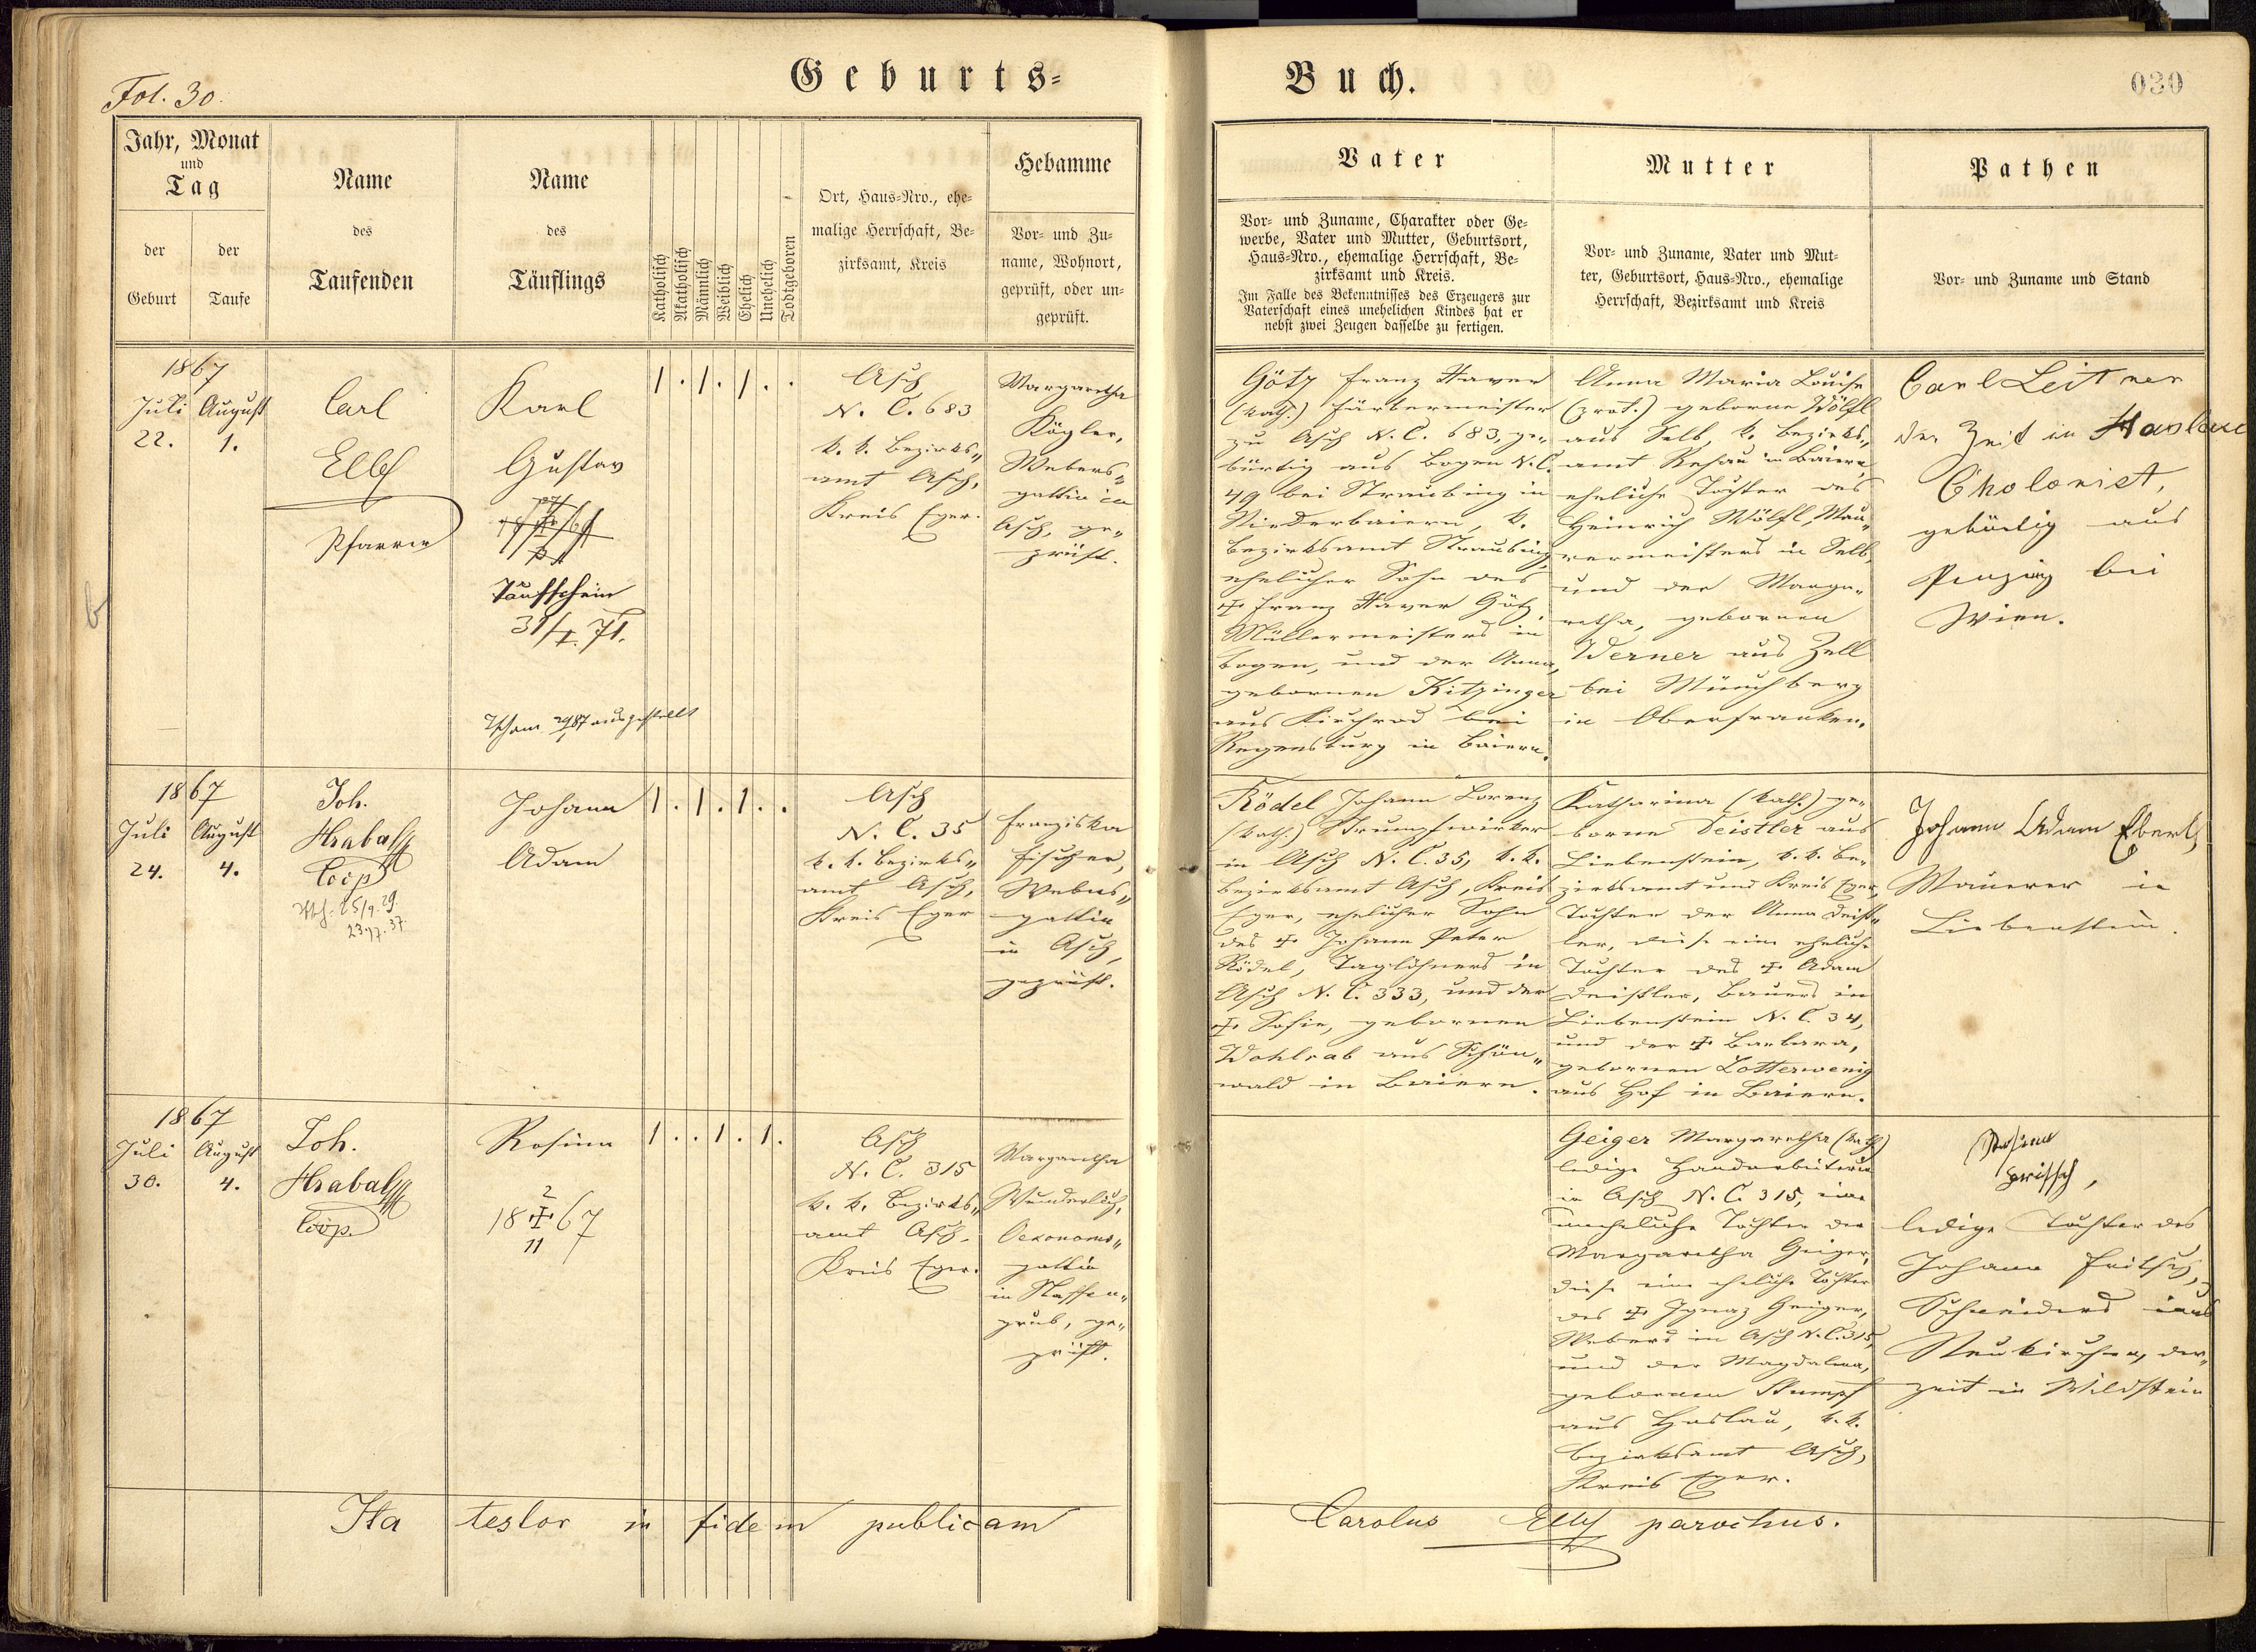 Fol. 30.
Geburts-
Buch.
030
Jahr, Monat
und
Tag
der
Geburt
der
Taufe
Name
des
Taufenden
Name
des
Täuflings
Katholisch
Akatholisch
Männlich
Weiblich
Ehelich
Unehelich
Todtgeboren
Ort, Haus-Nro., ehe-
malige Herrschaft, Be-
zirksamt, Kreis
Hebamme
Vor- und Zu-
name, Wohnort,
geprüft, oder un-
geprüft.
Vater
Vor- und Zuname, Charakter oder Ge-
werbe, Vater und Mutter, Geburtsort,
Haus-Nro., ehemalige Herrschaft, Be-
zirksamt und Kreis.
Im Falle des Bekenntnisses des Erzeugers zur
Vaterschaft eines unehelichen Kindes hat er
nebst zwei Zeugen dasselbe zu fertigen.
Mutter
Vor- und Zuname, Vater und Mut-
ter, Geburtsort, Haus-Nro., ehemalige
Herrschaft, Bezirksamt und Kreis
Pathen
Vor- und Zuname und Stand
1867
Juli
22.
August
1.
Carl
Elbl
Pfarrer
Karl
Gustav
Taufschein
31/I. 71.
ausgestellt
1 . 1 . 1 . .
Asch
N. C. 683
k. k. Bezirks„
amt Asch,
Kreis Eger.
Margaretha
Kögler,
Webers„
gattin in
Asch, ge„
prüft.
Götz Franz Xaver
(kath.) Färbermeister
zu Asch N. C. 683, ge„
bürtig aus Bogen N. C.
49 bei Straubing in
Niederbaiern, k.
Bezirksamt Straubing,
ehelicher Sohn des
† Franz Xaver Götz
Müllermeisters in
Bogen, und der Anna,
gebornen Kitzinger
aus Kirchrod bei
Regensburg in Baiern.
Anna Maria Louise
(prot.) geborne Wölfl
aus Selb, k. Bezirks„
amt Rehau in Baiern,
eheliche Tochter des
Heinrich Wölfl, Mau„
rermeisters in Selb,
und der Marga„
retha, gebornen
Werner aus Zell
bei Münchberg
in Oberfranken.
Carl Leitner
der Zeit in Haslau
Cholorist,
gebürtig aus
Penzing bei
Wien.
1867
Juli
24.
August
4.
Joh.
Hrabal
Coop
25/9. 29
23.17. 37.
Johann
Adam
1 . 1 . 1 . .
Asch
N. C. 35
k. k. Bezirks„
amt Asch,
Kreis Eger
Franziska
Fischer,
Webers„
gattin
in Asch,
geprüft.
Rödel Johann Lorenz
(kath.) Strumpfwirker
in Asch N. C. 35, k. k.
Bezirksamt Asch, Kreis
Eger, ehelicher Sohn
des † Johann Peter
Rödel, Taglöhners in
Asch N. C. 333, und der
† Sofie, gebornen
Wohlrab aus Schön„
wald in Baiern.
Katharina (kath.) ge„
borne Deistler aus
Liebenstein, k. k. Be„
zirksamt und Kreis Eger,
Tochter der Anna Deist„
ler, diese eine eheliche
Tochter des † Adam
Deistler, Bauers in
Liebenstein N. C. 34,
und der † Barbara,
gebornen Lotterwenig
aus Hof in Baiern.
Johann Adam Ebert,
Maurer in
Liebenstein.
1867
Juli
30.
August
4.
Joh.
Hrabal
Coop.
Rosina
2
18 † 67
11
1 . . 1 . 1 .
Asch
N. C. 315
k. k. Bezirks„
amt Asch.
Kreis Eger.
Margaretha
Wunderlich,
Oekonoms„
gattin
in Nassen„
grub, ge„
prüft.
Geiger Margaretha (kath.)
ledige Handarbeiterin
in Asch N. C. 315, eine
uneheliche Tochter der
Margaretha Geiger,
diese eine eheliche Tochter
des † Ignaz Geiger,
Webers in Asch N. C. 315,
und der Magdalena,
gebornen Stumpf
aus Haslau, k. k.
Bezirksamt Asch,
Kreis Eger.
Rosina
ledige Tochter des
Johann Fritsch,
Schneiders aus
Neukirchen, der„
zeit in Wildstein
Ita testor in fidem publicam
Carolus Elbl parochus.